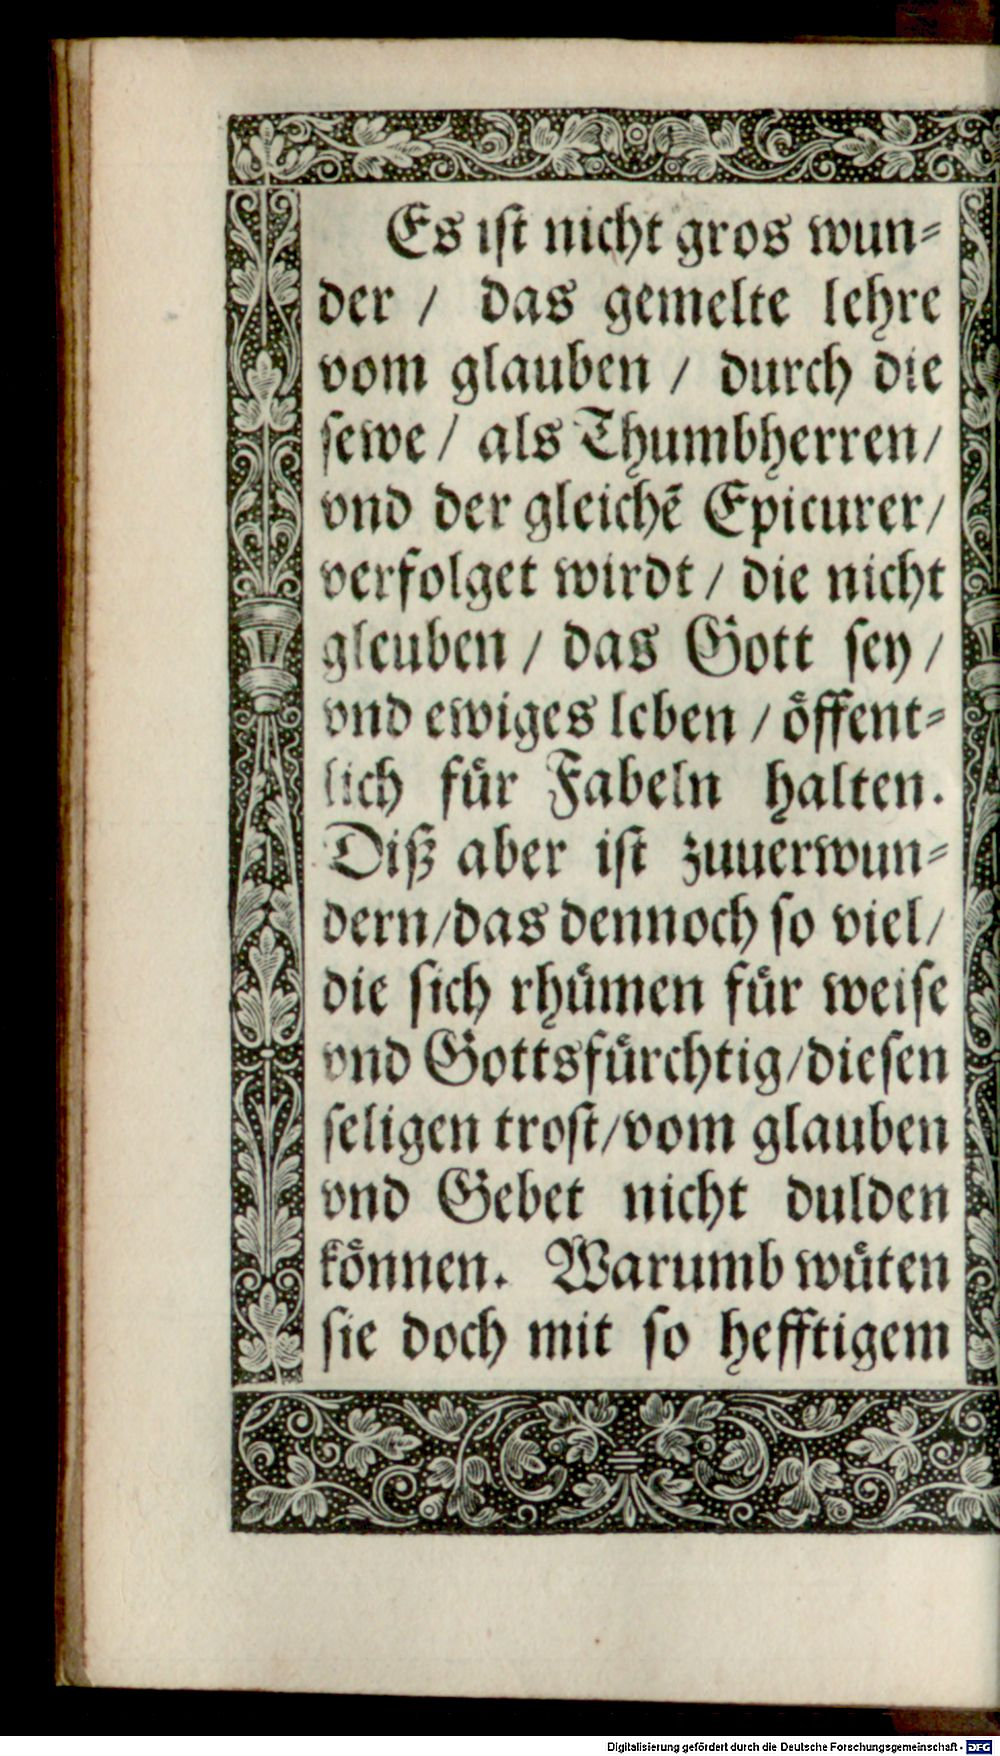 Es ist nicht gros wun⸗
der / das gemelte lehre
vom glauben / durch die
sewe / als Thumbherren/
vnd der gleichē Epicurer/
verfolget wirdt / die nicht
gleuben / das Gott sey /
vnd ewiges leben / öffent⸗
lich für Fabeln halten.
Diß aber ist zuuerwun⸗
dern/das dennoch so viel/
die sich rhümen für weise
vnd Gottsfürchtig/diesen
seligen trost/vom glauben
vnd Gebet nicht dulden
können. Warumb wüten
sie doch mit so hefftigem
Digitalisierung gefördert durch die Deutsche Forschungsgemeinschaft - DFG